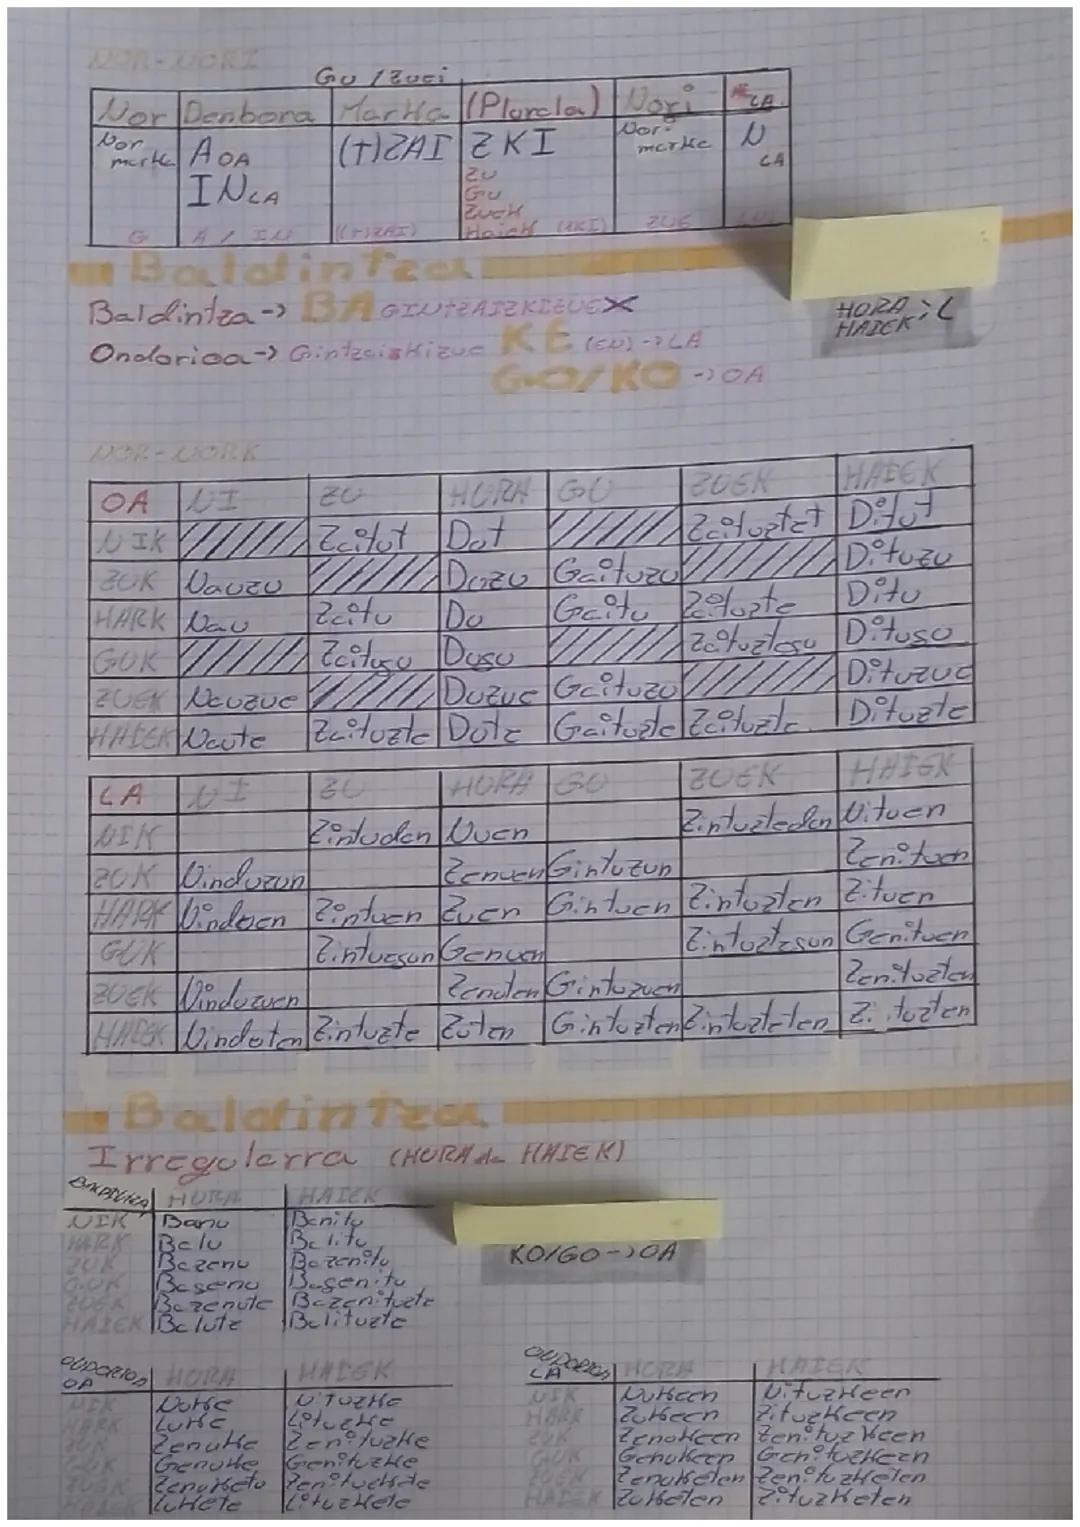 NOR-NORI
GU / Zuei
Nor Denbora Marka (Plurala) Nori LA
Nor marka A OA (T)ZAI ZKI Nor marka N LA
IN LA ZU
GU
ZUEK
G A / IN ((T)ZAI) Haiek (ZKI) ZUE
Baldintza
Baldintza-> BA GINTZAIZKIZUEX
HORA > L
HAIEK
Ondorioa-> Gintzaizkizue KE (EN)->LA
GO/KO ->OA
NOR-NORK
OA NI ZU HURA GU ZUEK HAIEK
NIK Zaitut Dut Zaituztet Ditut
ZUK Nauzu Dozu Gaituzu Dituzu
HARK Nau Zaitu Du Gaitu Zaituzte Ditu
GUK Zaitugu Dugu Zaituztegu Ditugu
ZUEK Nauzue Duzue Gaituzu Dituzue
HAIEK Naute Zaituzte Dute Gaituzte Zaituzte Dituzte
LA NI ZU HURA GU ZUEK HAIEK
NIK Zintudan Nuen Zintuztedan Nituen
ZUK Ninduzun Zenuen Gintuzun Zenituen
HARK Ninduen Zintuen Zuen Gintuen Zintuzten Zituen
GUK Zintuegun Genuen Zintuztegun Genituen
ZUEK Ninduzuen Zenuten Gintuzuen Zenituzten
HAIEK Ninduten Zintuzte Zuten Gintuzten Zintuzteten Zituzten
Baldintza
Irregularra (HURA da HAIEK)
BALDINTZA HURA HAIEK
NIK Banu Banitu
HARK Balu Balitu
ZUK Bazenu Bazenitu
GUK Bagenu Bagenitu
ZUEK Bazenute Bazenituzte
HAIEK Balute Balituzte
KO/GO->OA
ONDORIOA OA HURA HAIEK
NIK Nuke Nituzke
HARK Luke Lituzke
ZUK Zenuke Zenituzke
GUK Genuke Genituzke
ZUEK Zenukete
HAIEK Lukete Lituzkete
ONDORIOA LA HURA HAIEK
NIK Nukeen Nituzkeen
HARK Zukeen Zituzkeen
ZUK Zenukeen Zenituzkeen
GUK Genukeen Genituzkeen
ZUEK Zenuketen Zenituzketen
HAIEK Zuketen Zituzketen